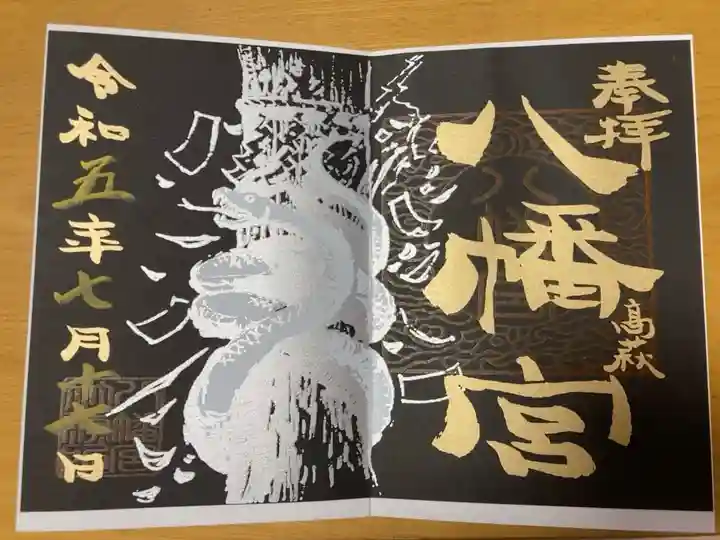 奉拝
八幡宮
高萩
令和五年七月十七日